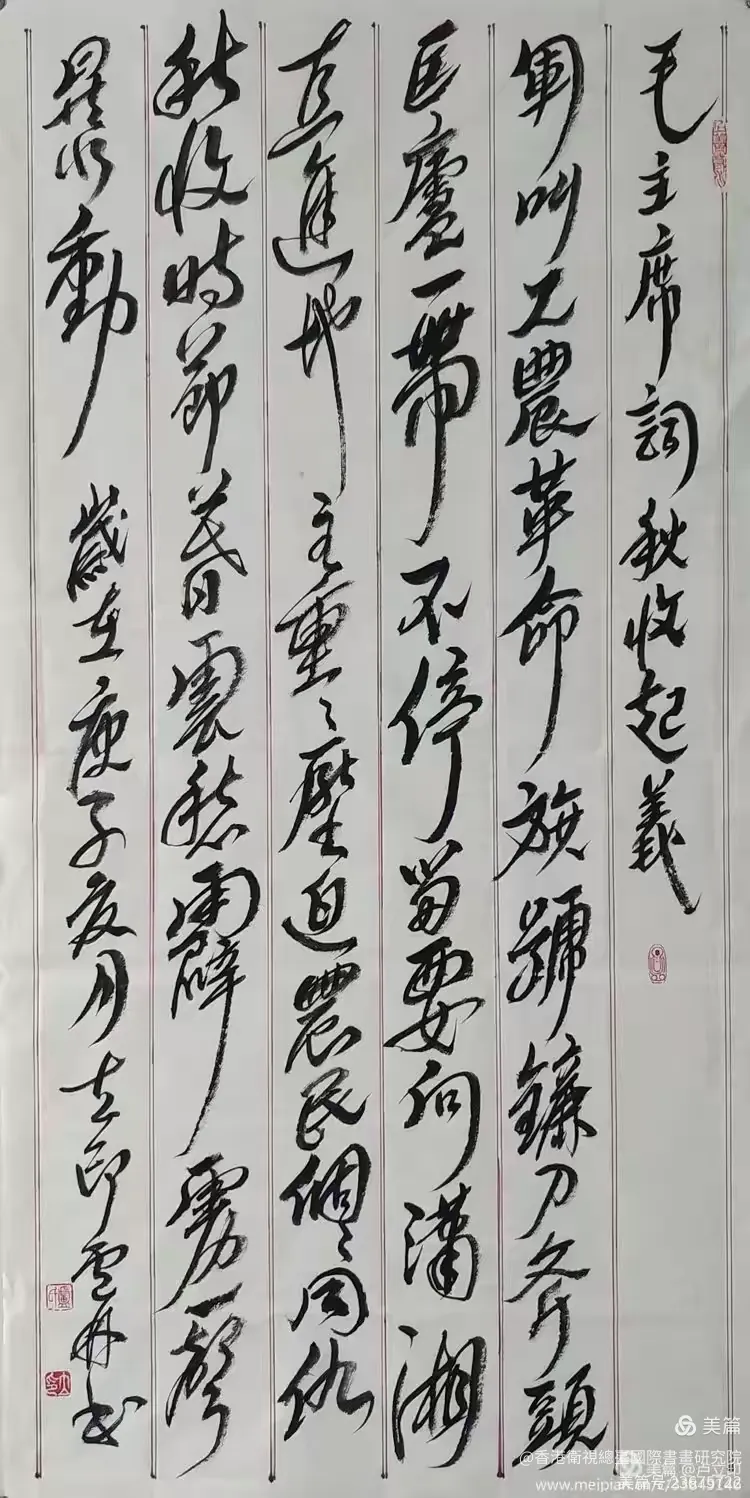 毛主席詞秋收起義
軍叫工農革命旗號鐮刀斧頭
匡廬一帶不停留要向瀟湘
直進地主重々壓迫農民個々同仇
秋收時節暮雲愁霹靂一聲
暴動 歲在庚子夏月立印書
美篇
@香港衛視總臺國際書畫研究院
美篇 @卢立印